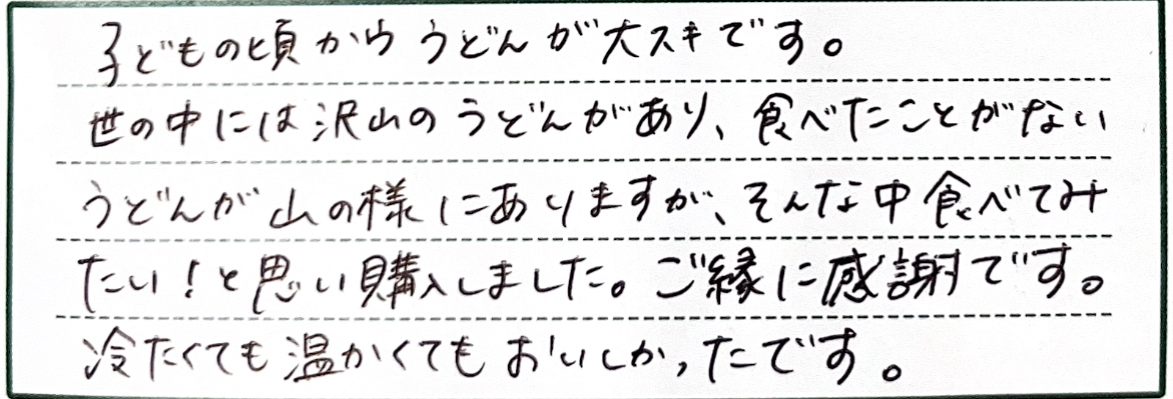 子どもの頃からうどんが大スキです。
世の中には沢山のうどんがあり、食べたことがない
うどんが山の様にありますが、そんな中食べてみ
たい！と思い購入しました。ご縁に感謝です。
冷たくても温かくてもおいしかったです。